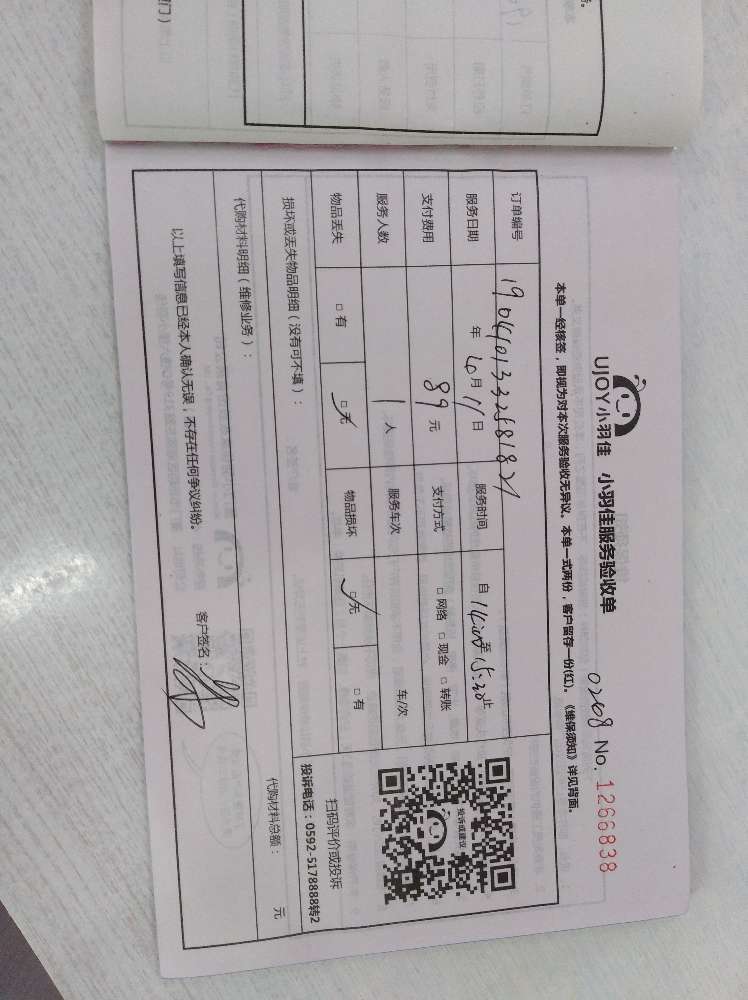 UJOY小羽佳 小羽佳服务验收单
0268 No. 1266838
本单一经核签，即视为对本次服务验收无异议。本单一式两份，客户留存一份(红)。《维保须知》详见背面。
订单编号 19040133258182
服务日期 年 4月 11日 服务时间 自 14:00至 15:30止
支付费用 89 元 支付方式 □ 网络 □ 现金 □ 转账
服务人数 1 人 服务车次 车/次
物品丢失 □ 有 □ 无 物品损坏 □ 无 □ 有
投诉或建议
扫码评价或投诉
投诉电话：0592-5178888转2
损坏或丢失物品明细（没有可不填）：
代购材料明细（维修业务）： 代购材料总额： 元
以上填写信息已经本人确认无误，不存在任何争议纠纷。
客户签名：